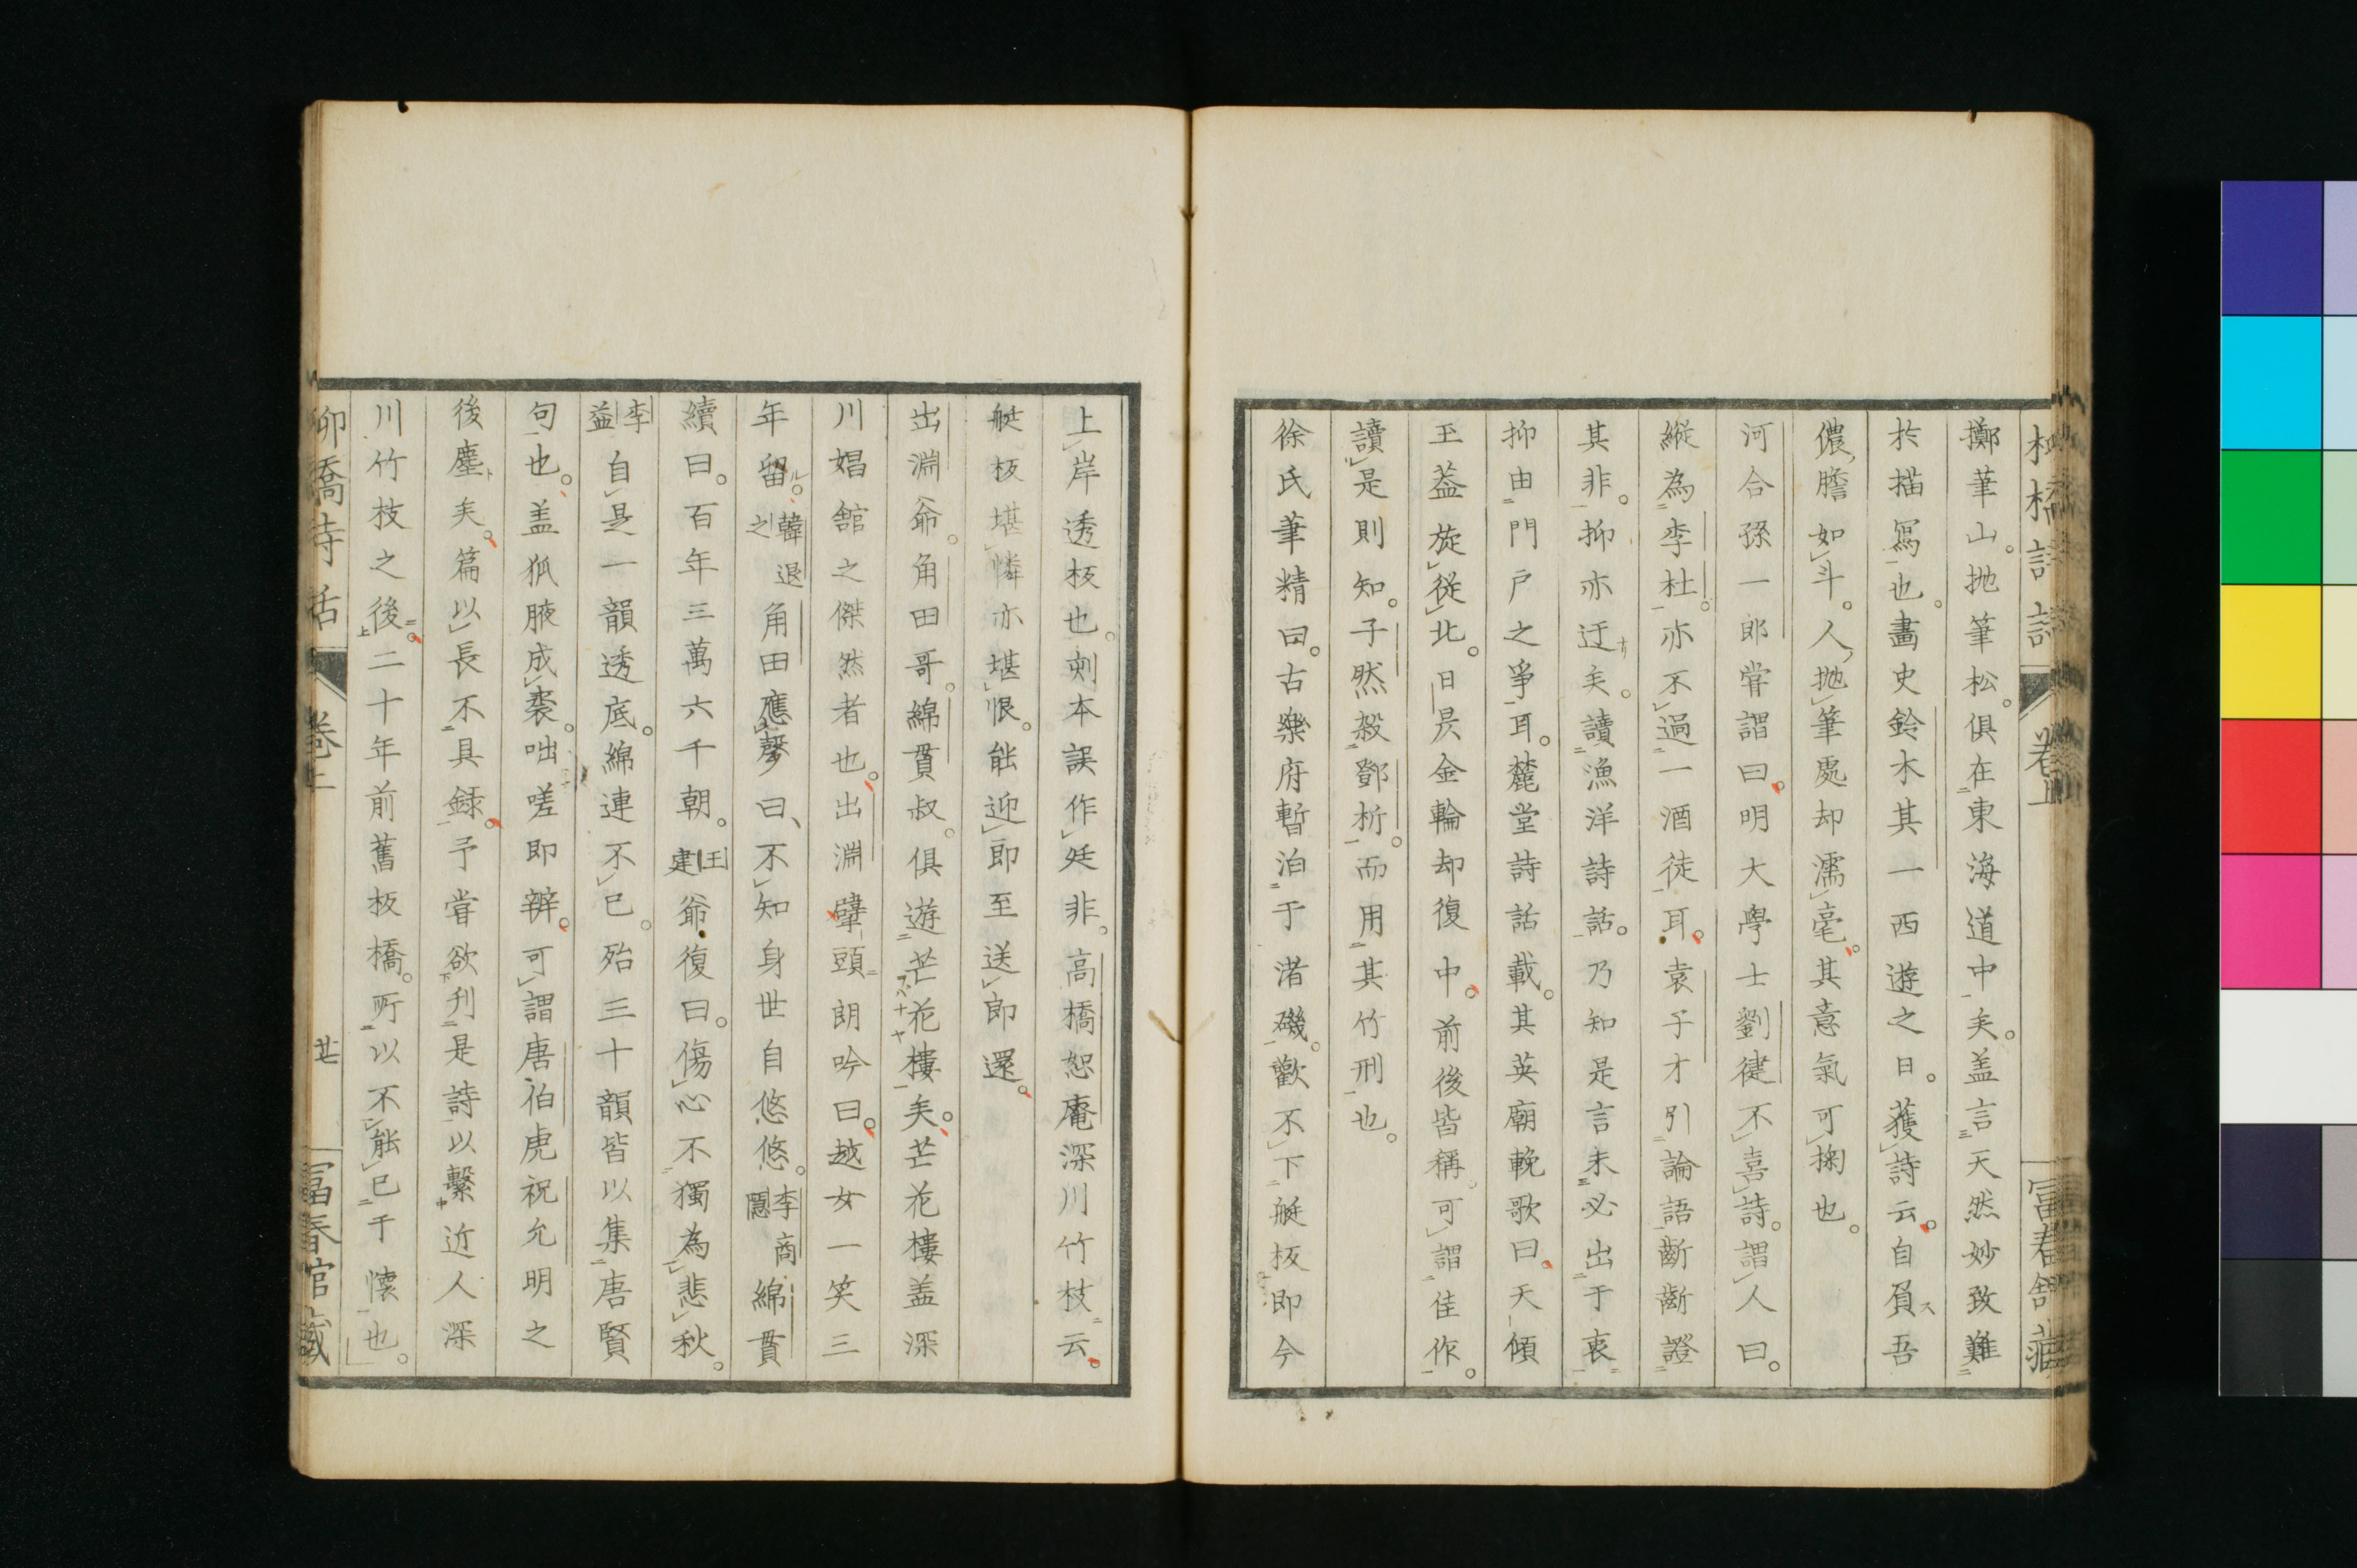 擲筆山。抛筆松。俱在東海道中矣。盖言天然妙致難
於描寫也。畫史鈴木其一西遊之日。獲詩云。自負吾
儂膽如斗。人抛筆處却濡毫。其意氣可掬也。
河合孫一郎嘗謂曰。明大學士劉健不喜詩。謂人曰。
縱為李杜。亦不過一酒徒耳。袁子才引論語齗齗證
其非。抑亦迂矣。讀漁洋詩話。乃知是言未必出于衷
抑由門戶之爭耳。麓堂詩話載。其英廟輓歌曰。天傾
玉葢旋從北。日昃金輪却復中。前後皆稱可謂佳作。
讀是則知。子然殺鄧析。而用其竹刑也。
徐氏筆精曰。古樂府暫泊于渚磯。歡不下艇板即今
上岸透板也。刻本誤作廷非。高橋恕庵深川竹枝云。
艇板堪憐亦堪恨。能迎即至送即還。
出淵爺。角田哥。綿貫叔。俱遊芒花樓矣。芒花樓盖深
川娼館之傑然者也。出淵肇頭朗吟曰。越女一笑三
年留。韓退之角田應聲曰、不知身世自悠悠。李商隱綿貫
續曰。百年三萬六千朝。王建爺復曰。傷心不獨為悲秋。
李益自是一韻透底。綿連不已。殆三十韻皆以集唐賢
句也。盖狐腋成裘。咄嗟即辨。可謂唐伯虎祝允明之
後塵矣。篇以長不具録。予嘗欲刊是詩以繫近人深
川竹枝之後。二十年前舊板橋。所以不能已于懷也。
柳橋詩話
卷上
廿
富春館藏